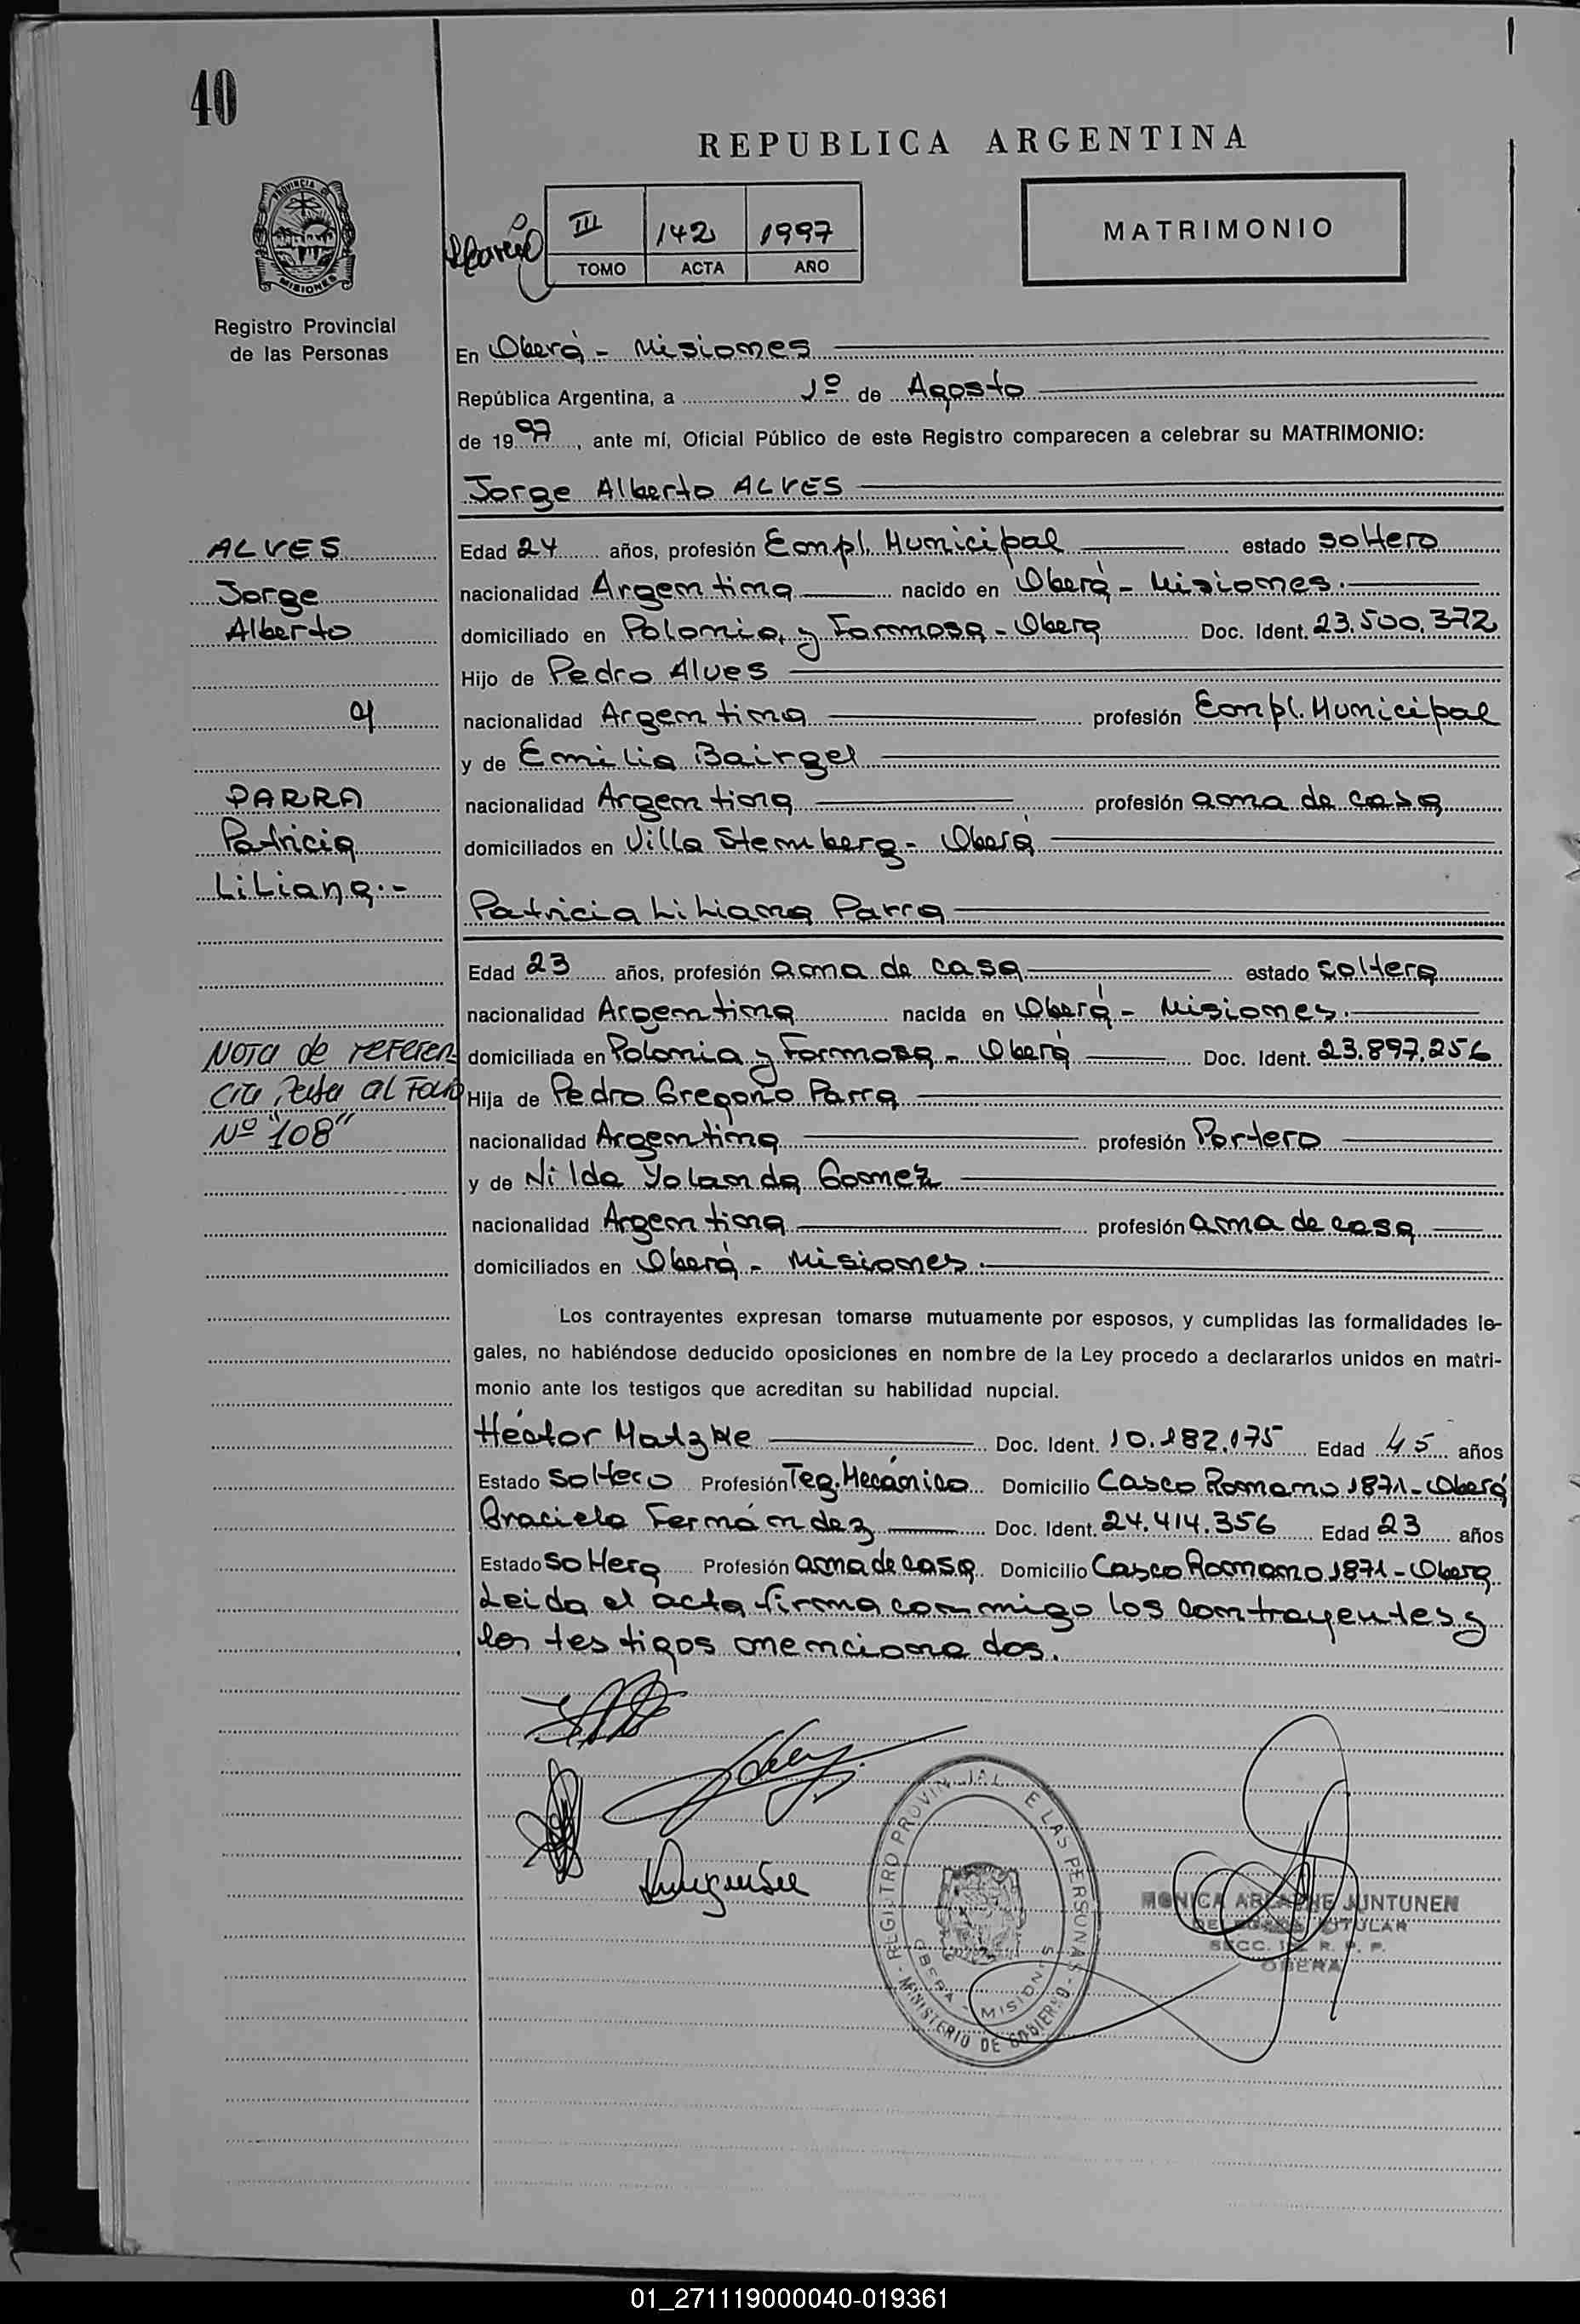 40
REPUBLICA ARGENTINA
PROVINCIA DE
MISIONES
III 142 1997
TOMO ACTA AÑO
MATRIMONIO
Registro Provincial
de las Personas
En Oberá - Misiones
República Argentina, a 1º de Agosto
de 1997, ante mí, Oficial Público de este Registro comparecen a celebrar su MATRIMONIO:
Jorge Alberto ALVES
ALVES
Jorge
Alberto
y
PARRA
Patricia
Liliana.-
Nota de referen
cia pasa al Folio
Nº "108"
Edad 24 años, profesión Empl. Municipal estado soltero
nacionalidad Argentina nacido en Oberá - Misiones.
domiciliado en Polonia y Formosa - Oberá Doc. Ident. 23.500.372
Hijo de Pedro Alves
nacionalidad Argentina profesión Empl. Municipal
y de Emilia Bairgel
nacionalidad Argentina profesión ama de casa
domiciliados en Villa Stemberg - Oberá
Patricia Liliana Parra
Edad 23 años, profesión ama de casa estado soltera
nacionalidad Argentina nacida en Oberá - Misiones.
domiciliada en Polonia y Formosa - Oberá Doc. Ident. 23.897.256
Hija de Pedro Gregorio Parra
nacionalidad Argentina profesión Portero
y de Nilda Yolanda Gomez
nacionalidad Argentina profesión ama de casa
domiciliados en Oberá - Misiones.
Los contrayentes expresan tomarse mutuamente por esposos, y cumplidas las formalidades le-
gales, no habiéndose deducido oposiciones en nombre de la Ley procedo a declararlos unidos en matri-
monio ante los testigos que acreditan su habilidad nupcial.
Héctor Matzke Doc. Ident. 10.182.175 Edad 45 años
Estado soltero Profesión Teg. Mecánico Domicilio Casco Romano 1871 - Oberá
Graciela Fernández Doc. Ident. 24.414.356 Edad 23 años
Estado soltera Profesión ama de casa Domicilio Casco Romano 1871 - Oberá
Leida el acta firma conmigo los contrayentes y
los testigos mencionados.
REGISTRO PROVINCIAL DE LAS PERSONAS - MINISTERIO DE GOBIERNO -
OBERA - MISIONES
MONICA ARIADNE JUNTUNEN
DELEGADA TITULAR
SECC. R. P. P.
OBERA
01_271119000040-019361